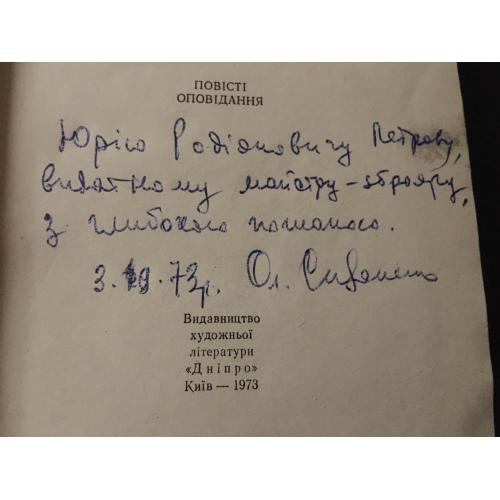 ПОВІСТІ
ОПОВІДАННЯ
Юрію Родіоновичу Петрову,
видатному майстру-зброяру,
з глибокою пошаною.
73р. Ол.
Видавництво
художньої
літератури
«Дніпро»
Київ — 1973